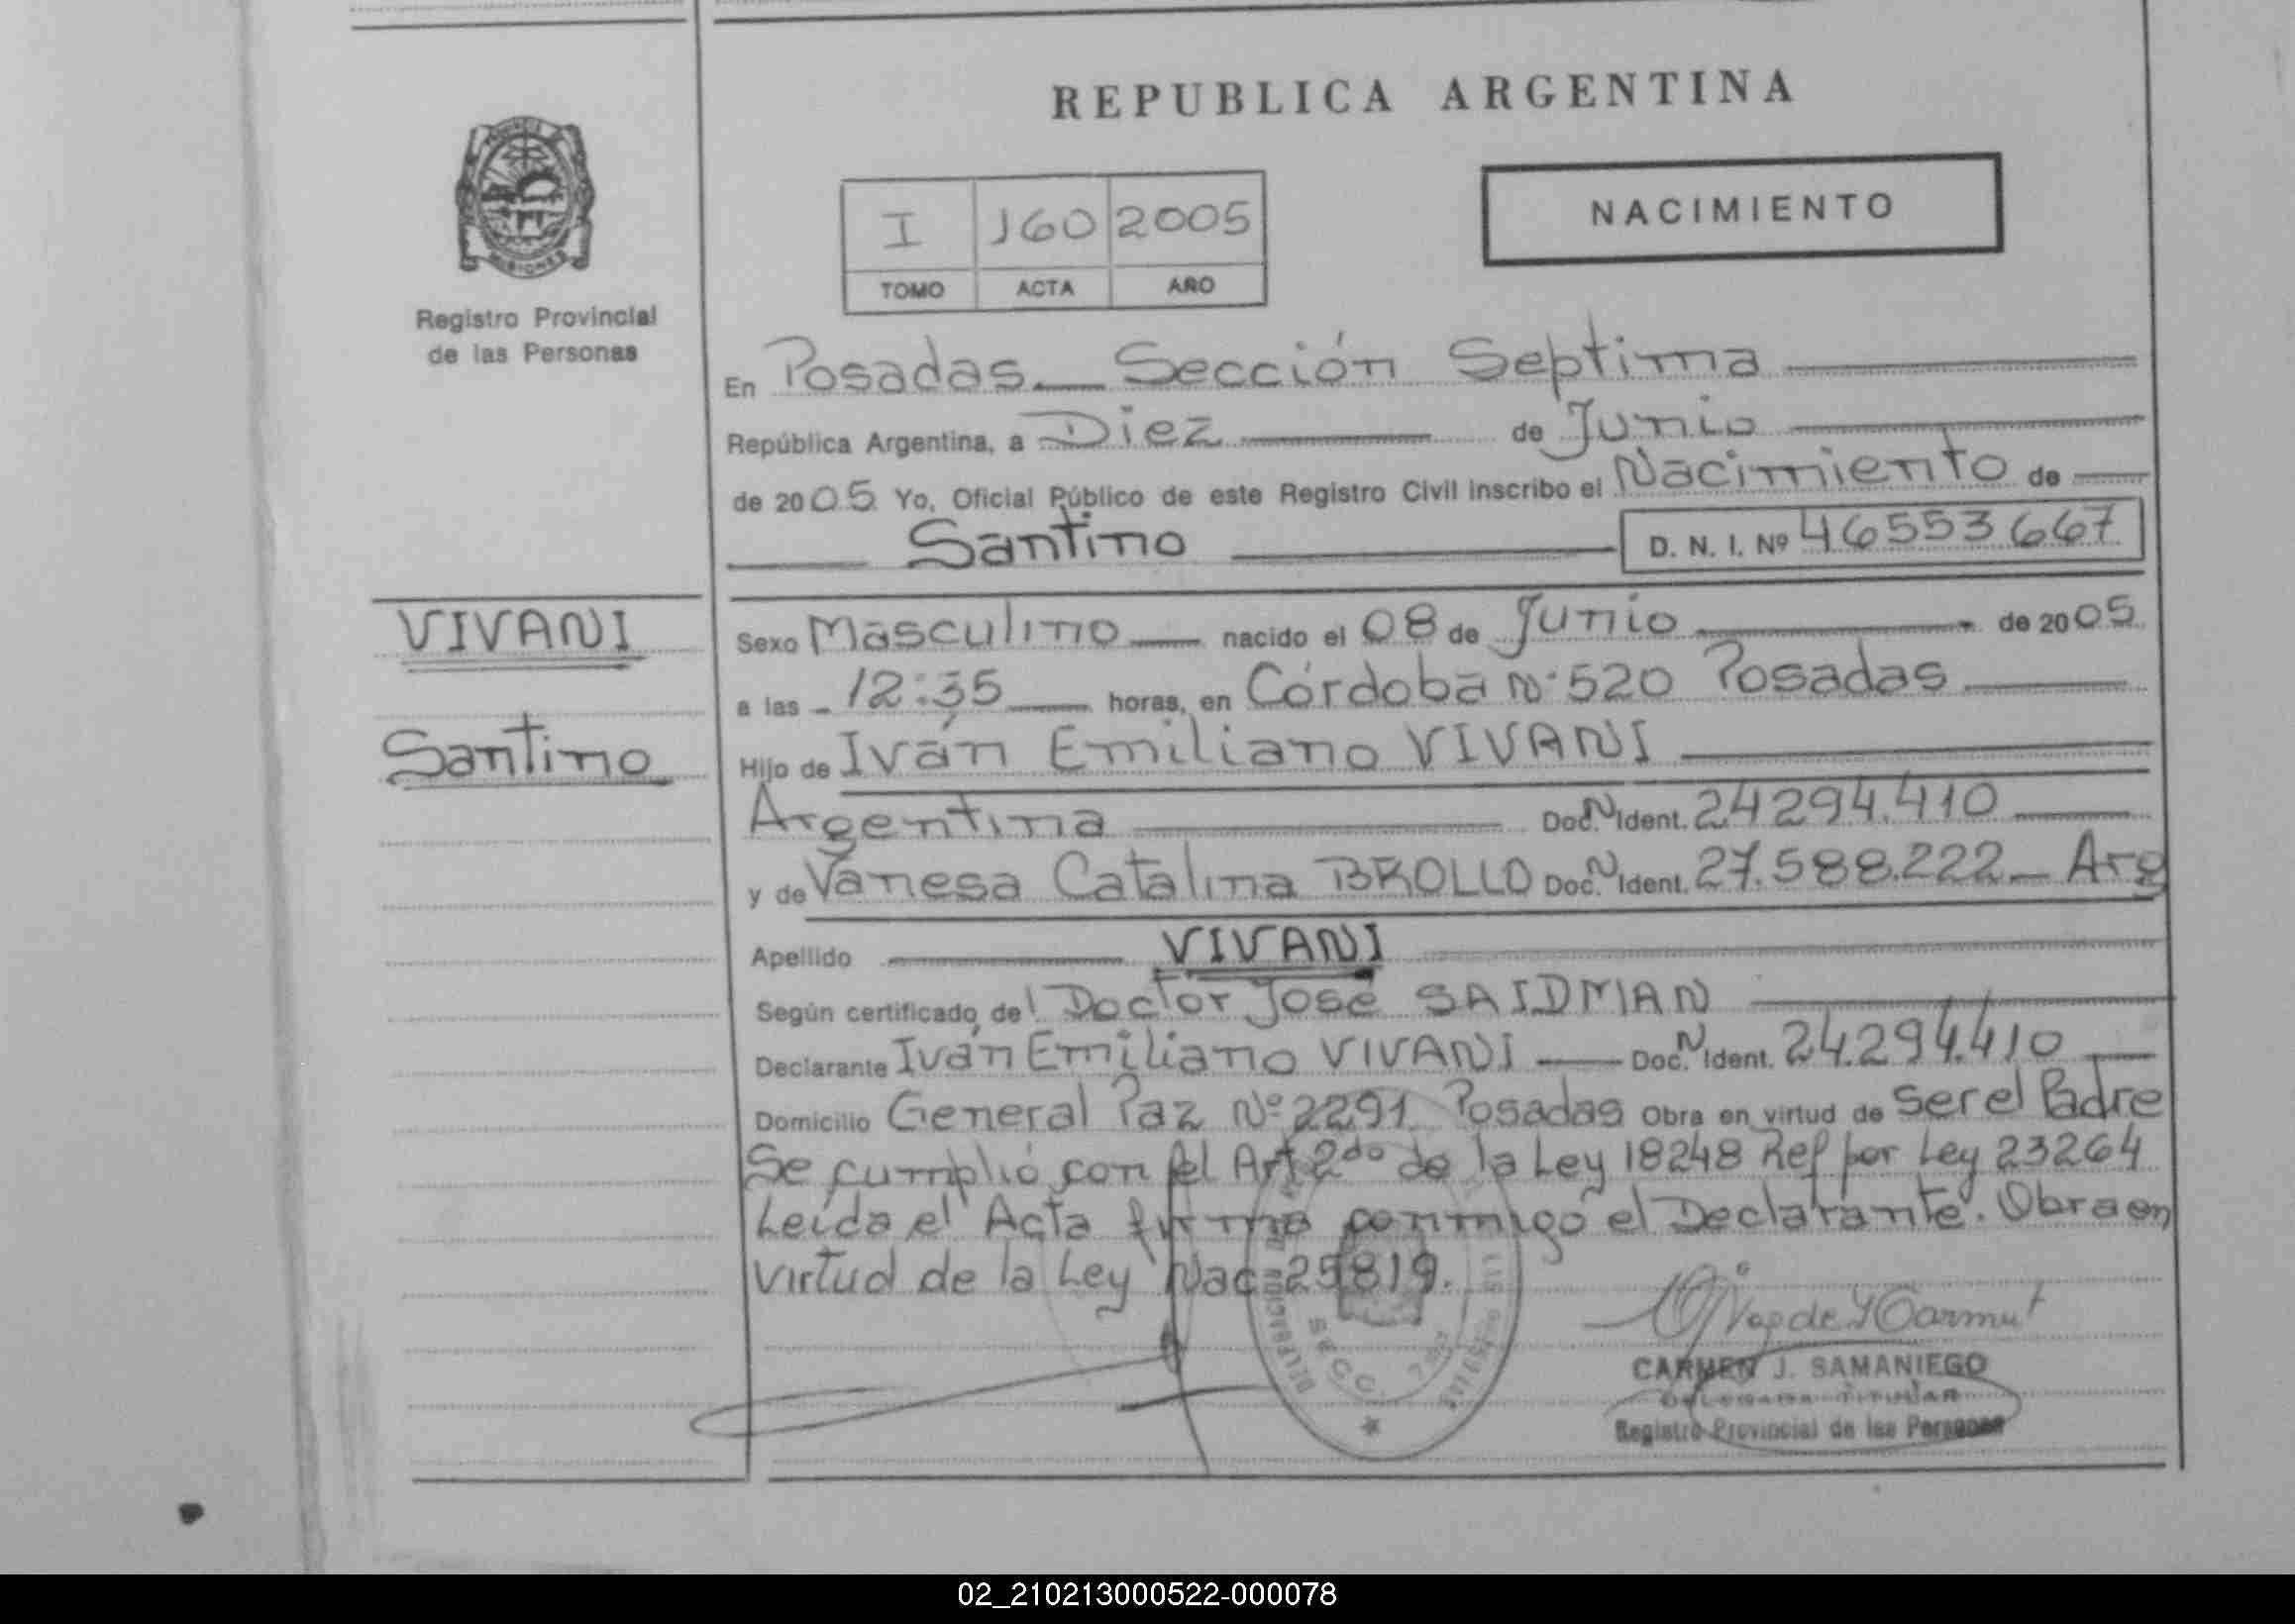 REPUBLICA ARGENTINA
PROVINCIA
MISIONES
Registro Provincial
de las Personas
I 160 2005
TOMO ACTA AÑO
NACIMIENTO
En Posadas. Sección Septima
República Argentina, a Diez de Junio
de 2005 Yo, Oficial Público de este Registro Civil inscribo el Nacimiento de
Santino D. N. I. Nº 46553667
VIVANI
Santino
Sexo Masculino nacido el 08 de Junio de 2005
a las 12:35 horas, en Córdoba Nº 520 Posadas
Hijo de Iván Emiliano VIVANI
Argentina Doc. N Ident. 24294.410
y de Vanesa Catalina BROLLO Doc. N Ident. 27.588.222 Arg
Apellido VIVANI
Según certificado del Doctor José SAIDMAN
Declarante Iván Emiliano VIVANI Doc. N Ident. 24.294.410
Domicilio General Paz Nº 2291 Posadas Obra en virtud de ser el Padre
Se cumplió con el Art 2do de la Ley 18248 Ref por Ley 23264
Leída el Acta firma conmigo el Declarante. Obra en
virtud de la Ley Nac 25819.
SECC.
CARMEN J. SAMANIEGO
DELEGADA TITULAR
Registro Provincial de las Personas
02_210213000522-000078